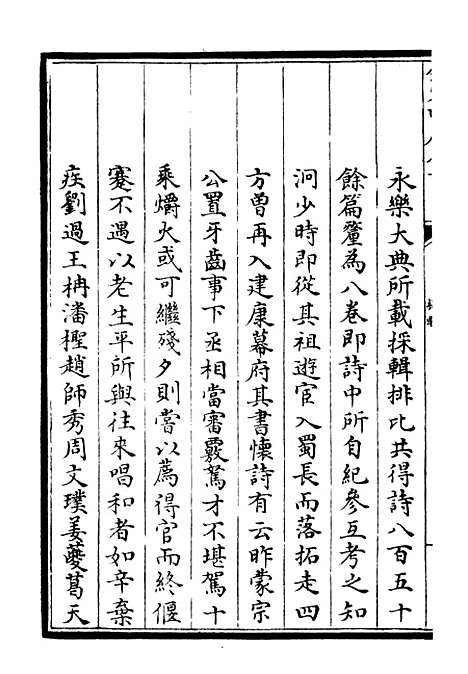 永樂大典所載採輯排比共得詩八百五十
餘篇釐為八卷即詩中所自紀參互考之知
泂少時即從其祖遊宦入蜀長而落拓走四
方曽再入建康幕府其書懷詩有云昨蒙宗
公置牙齒事下丞相當審覈駑才不堪駕十
乘爝火或可繼殘夕則嘗以薦得官而終偃
蹇不遇以老生平所與往來唱和者如辛棄
疾劉過王柟潘檉趙師秀周文璞姜夔葛天